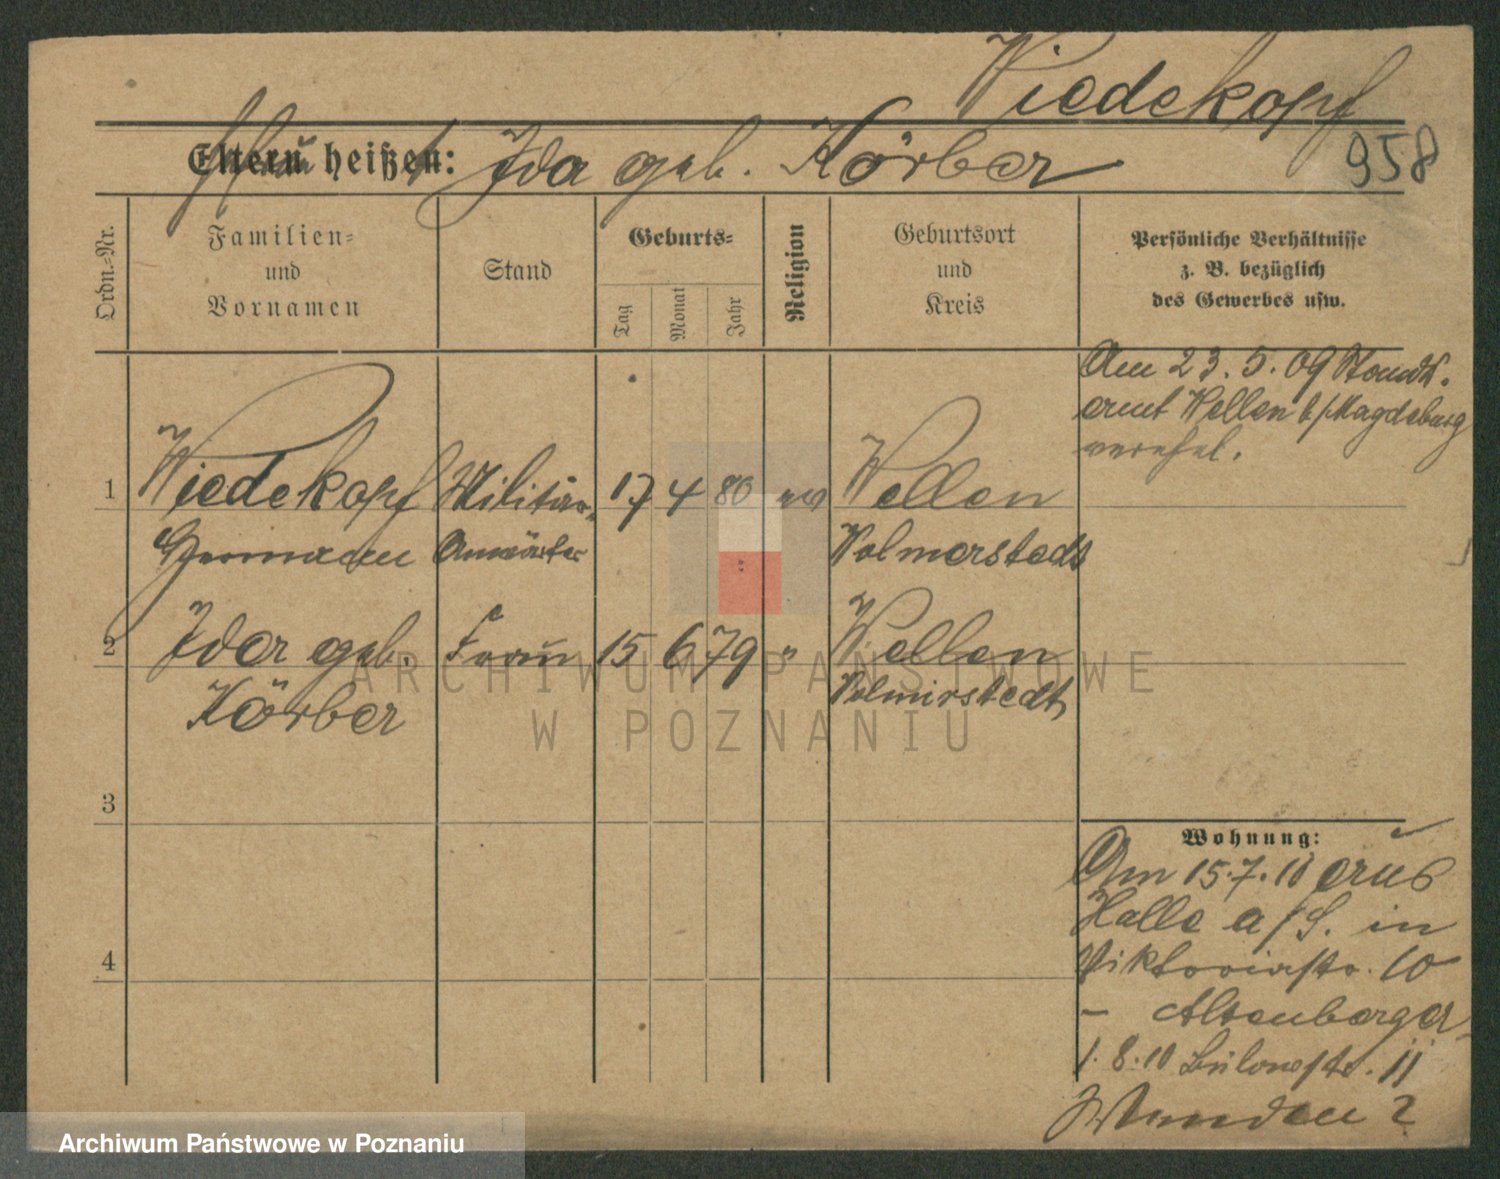 Wiedekopf
958
Eltern heißen: Ida geb. Körber
Ordn.-Nr.
Familien-
und
Vornamen
Stand
Geburts-
Tag
Monat
Jahr
Religion
Geburtsort
und
Kreis
Persönliche Verhältnisse
z. B. bezüglich
des Gewerbes usw.
Am 23.5.09 Standes-
amt Wellen b/Magdeburg
verehel.
1 Wiedekopf Militär- 17 4 80 ev Wellen
Hermann Anwärter Wolmerstedt
2 Ida geb. Frau 15 6 79 " Wellen
Körber Wolmirstedt
3
4
Wohnung:
Am 15.7.10 aus
Halle a/S. in
Viktoriastr. 10
- Altenberger
1.8.10 Bülowstr. 11
ARCHIWUM PAŃSTWOWE
W POZNANIU
Archiwum Państwowe w Poznaniu